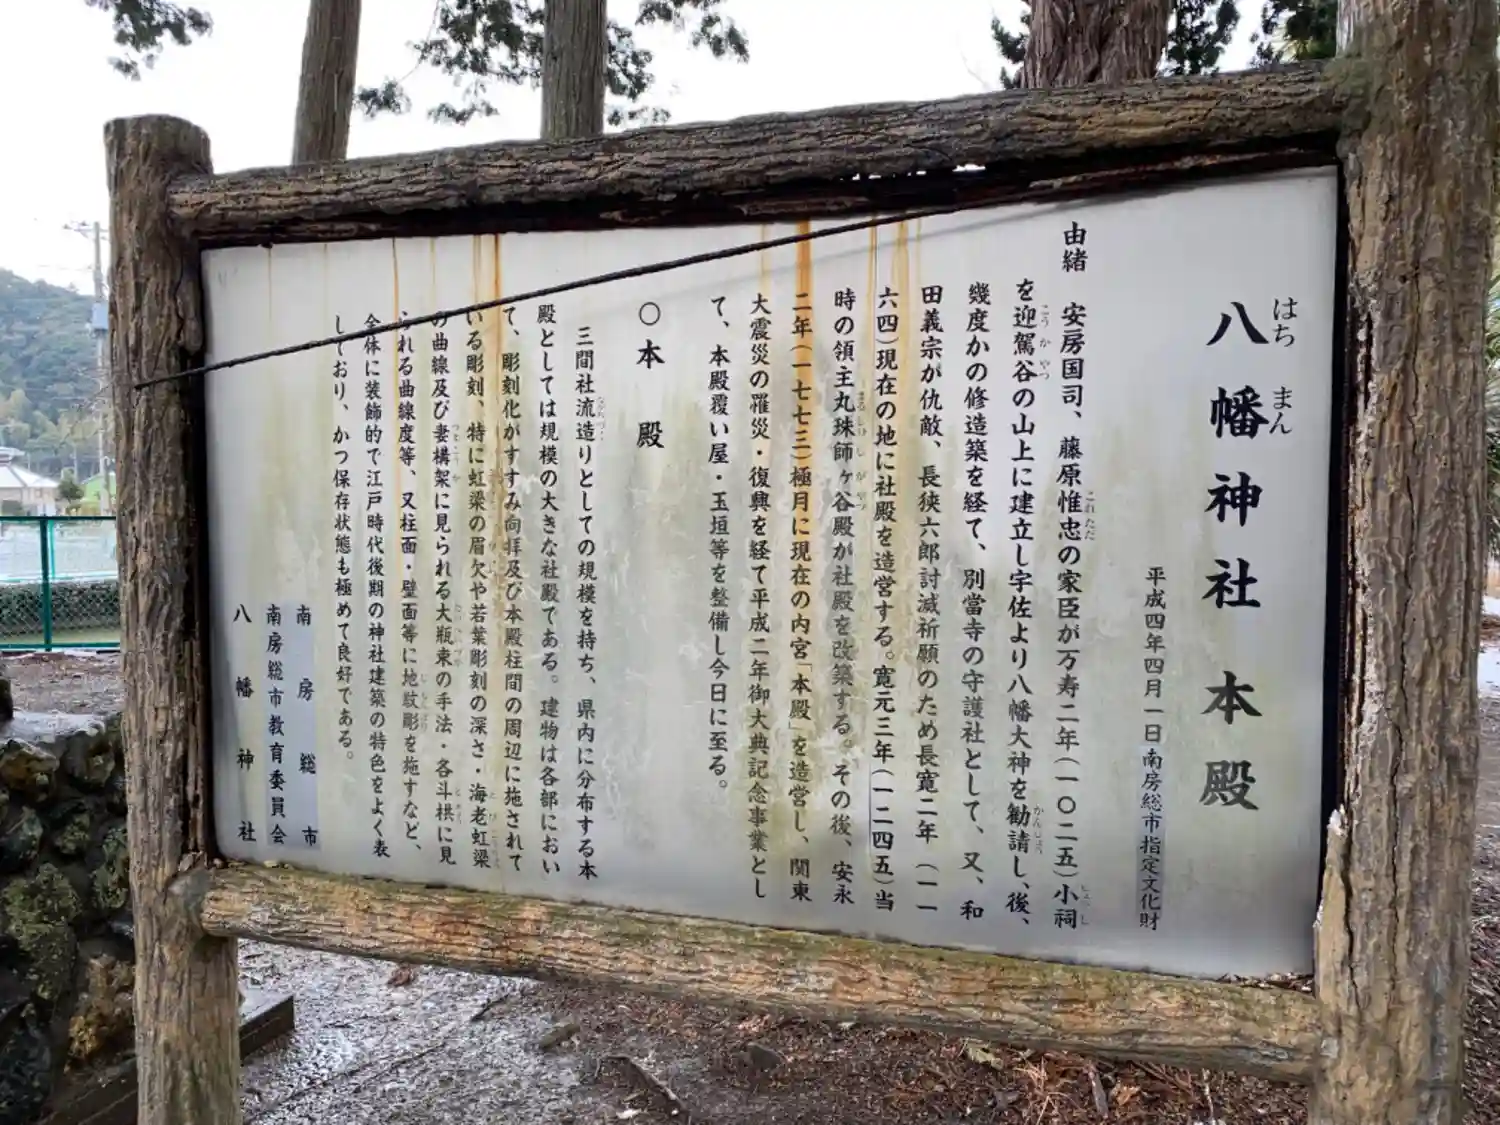 八幡神社 本殿
はち まん
平成四年四月一日南房総市指定文化財
由緒 安房国司、藤原惟忠の家臣が万寿二年(一〇二五)小祠
を迎駕谷の山上に建立し宇佐より八幡大神を勧請し、後、
幾度かの修造築を経て、別當寺の守護社として、又、和
田義宗が仇敵、長狭六郎討滅祈願のため長寛二年(一一
六四)現在の地に社殿を造営する。寛元三年(一二四五)当
時の領主丸珠師ヶ谷殿が社殿を改築する。その後、安永
二年(一七七三)極月に現在の内宮「本殿」を造営し、関東
大震災の罹災・復興を経て平成二年御大典記念事業とし
て、本殿覆い屋・玉垣等を整備し今日に至る。
〇本 殿
三間社流造りとしての規模を持ち、県内に分布する本
殿としては規模の大きな社殿である。建物は各部におい
て、彫刻化がすすみ向拝及び本殿柱間の周辺に施されて
いる彫刻、特に虹梁の眉欠や若葉彫刻の深さ・海老虹梁
の曲線及び妻構架に見られる大瓶束の手法・各斗拱に見
られる曲線度等、又柱面・壁面等に地紋彫を施すなど、
全体に装飾的で江戸時代後期の神社建築の特色をよく表
しており、かつ保存状態も極めて良好である。
南房総市
南房総市教育委員会
八幡神社